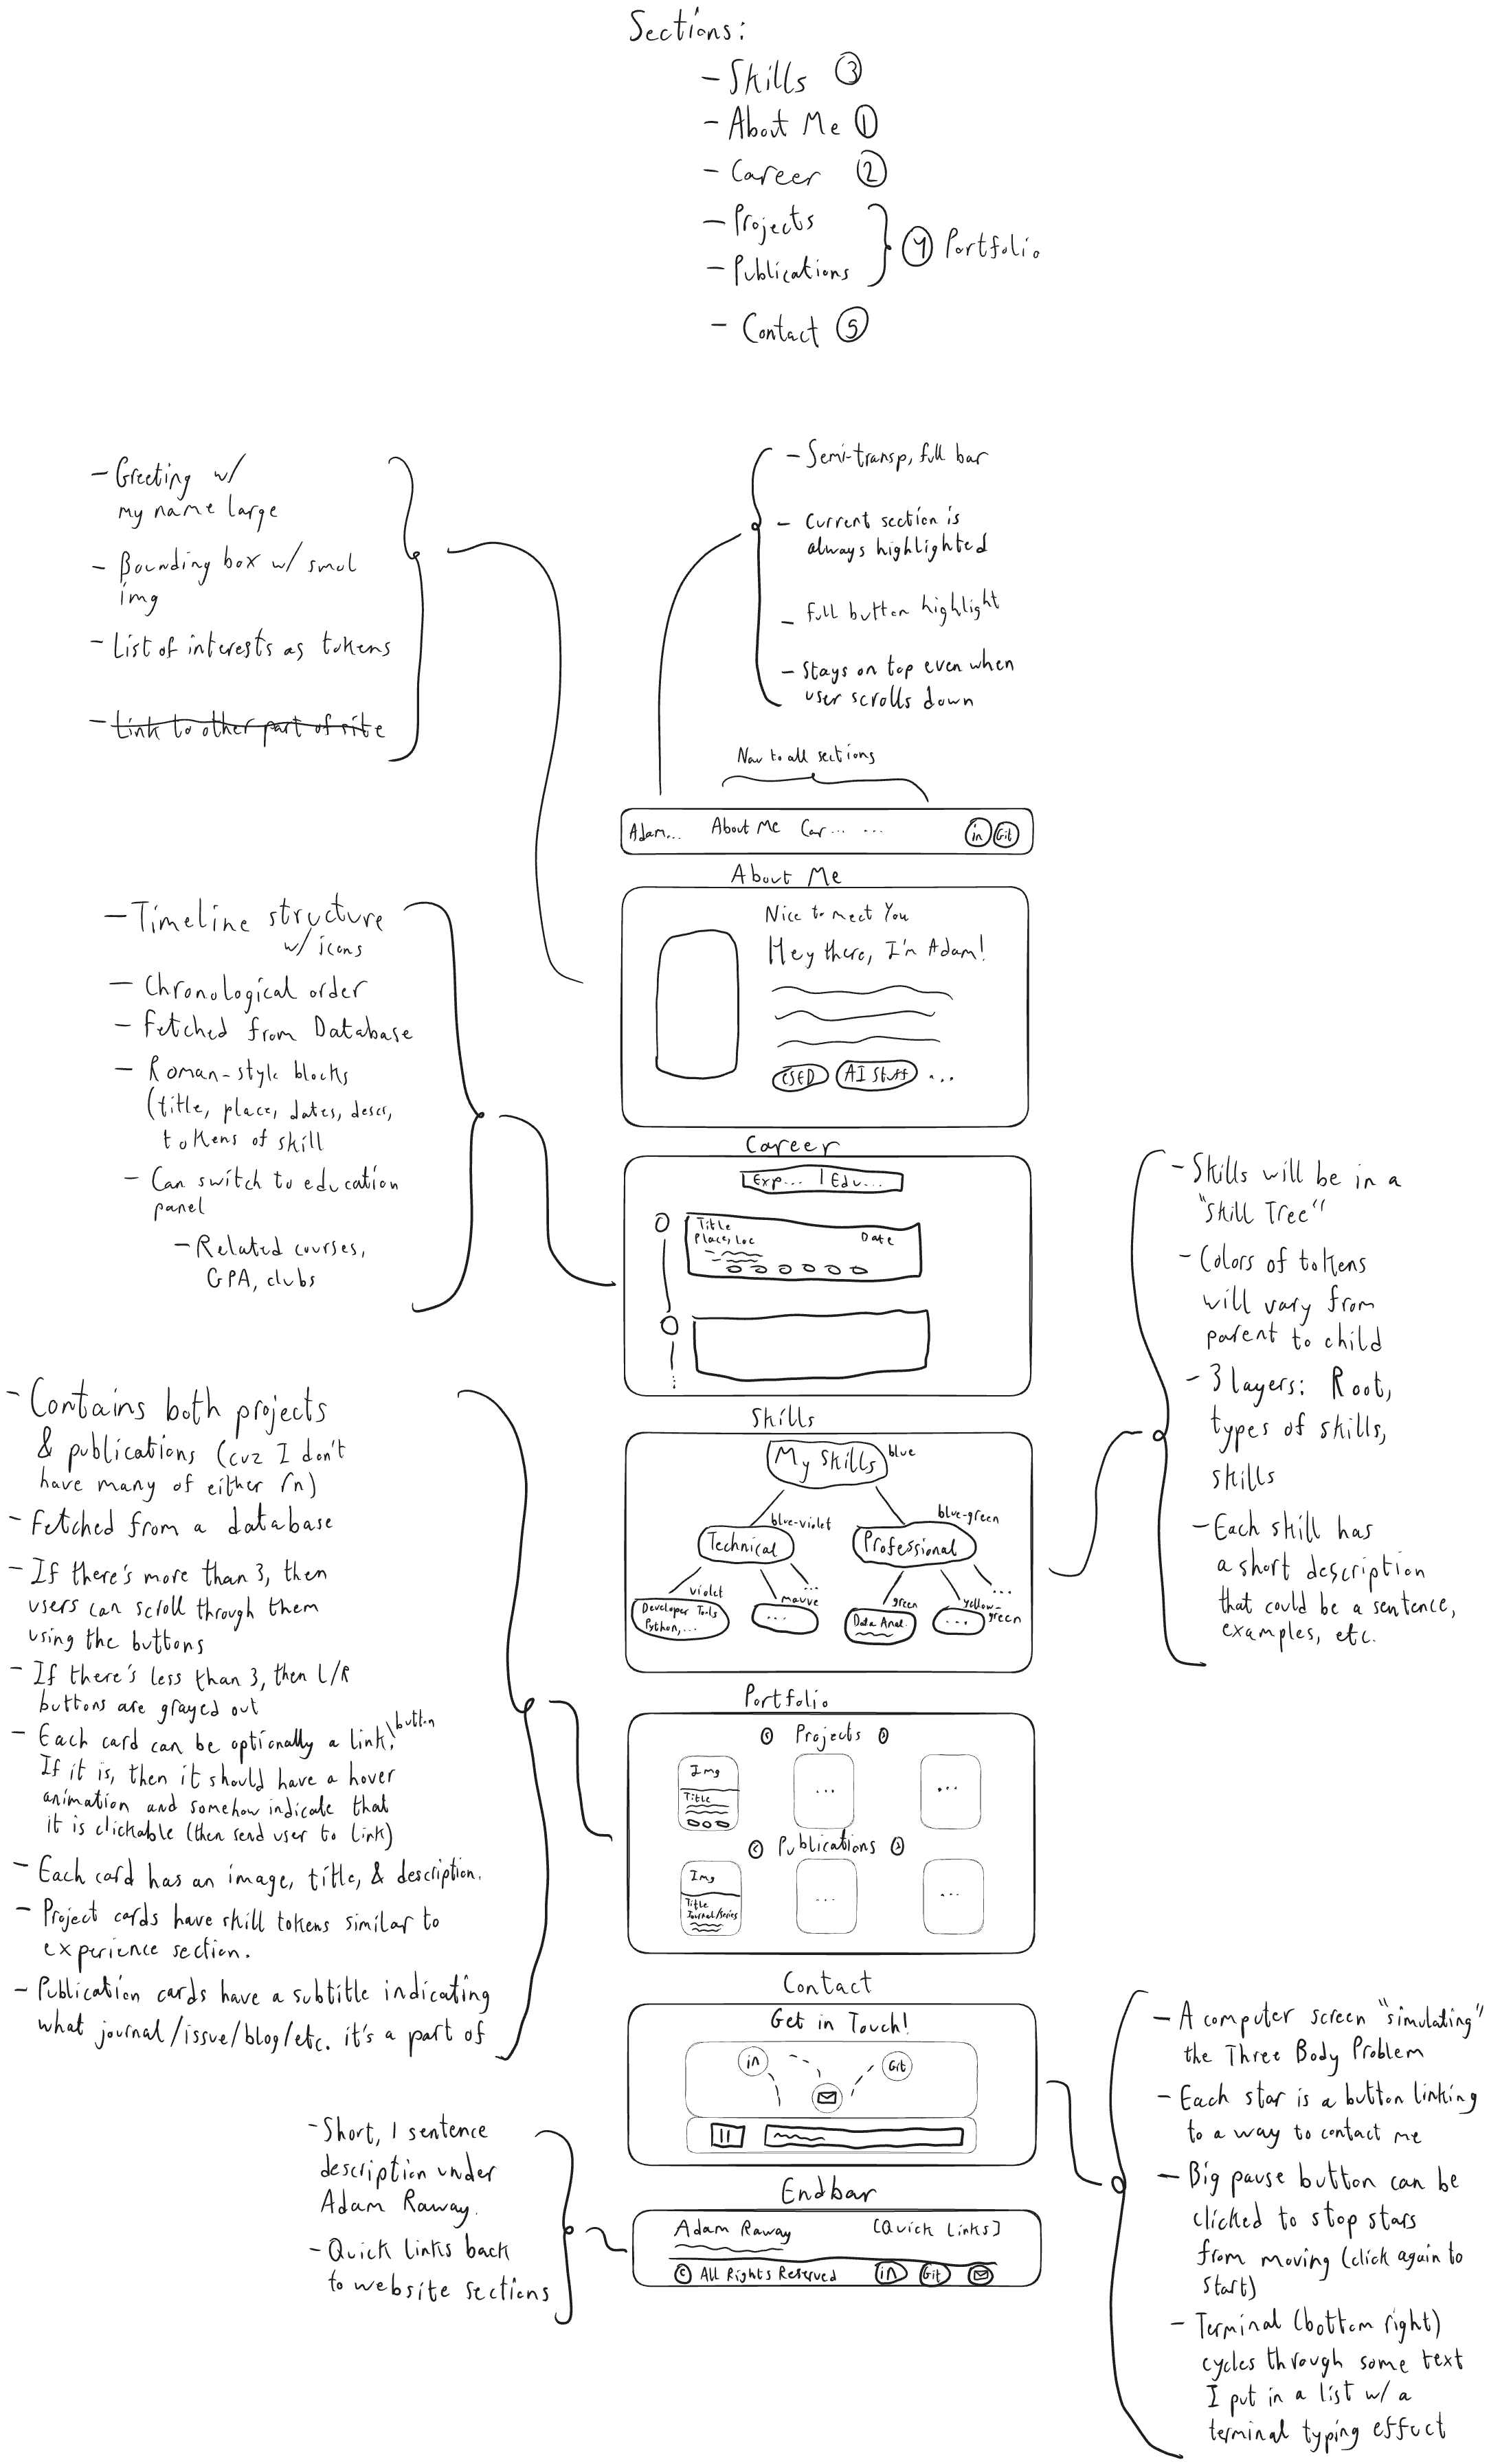 Sections:
- Skills ③
- About Me ①
- Career ②
- Projects
- Publications
④ Portfolio
- Contact ⑤
- Greeting w/
my name large
- Bounding box w/ smol
img
- List of interests as tokens
- Link to other part of site
- Semi-transp, full bar
- Current section is
always highlighted
- Full button highlight
- Stays on top even when
user scrolls down
Nav to all sections
Adam... About Me Car... ... in Git
About Me
Nice to meet You
Hey there, I'm Adam!
CSED AI Stuff ...
- Timeline structure
w/ icons
- Chronological order
- Fetched from Database
- Roman-style blocks
(title, place, dates, descr,
tokens of skill
- Can switch to education
panel
- Related courses,
GPA, clubs
Career
Exp... | Edu...
Title
Place, Loc Date
- Skills will be in a
"Skill Tree"
- Colors of tokens
will vary from
parent to child
- 3 layers: Root,
types of skills,
skills
- Each skill has
a short description
that could be a sentence,
examples, etc.
Skills
My Skills blue
blue-violet blue-green
Technical Professional
violet mauve ... green yellow-green ...
Developer Tools
Python,...
...
Data Anal.
...
- Contains both projects
& publications (cuz I don't
have many of either rn)
- Fetched from a database
- If there's more than 3, then
users can scroll through them
using the buttons
- If there's less than 3, then L/R
buttons are grayed out
- Each card can be optionally a link\button.
If it is, then it should have a hover
animation and somehow indicate that
it is clickable (then send user to link)
- Each card has an image, title, & description.
- Project cards have skill tokens similar to
experience section.
- Publication cards have a subtitle indicating
what journal/issue/blog/etc. it's a part of
Portfolio
< Projects >
Img
Title
...
...
< Publications >
Img
Title
Journal/Series
...
...
Contact
Get in Touch!
in Git
- A computer screen "simulating"
the Three Body Problem
- Each star is a button linking
to a way to contact me
- Big pause button can be
clicked to stop stars
from moving (click again to
start)
- Terminal (bottom right)
cycles through some text
I put in a list w/ a
terminal typing effect
- Short, 1 sentence
description under
Adam Raway.
- Quick links back
to website sections
Endbar
Adam Raway [Quick Links]
© All Rights Reserved in Git